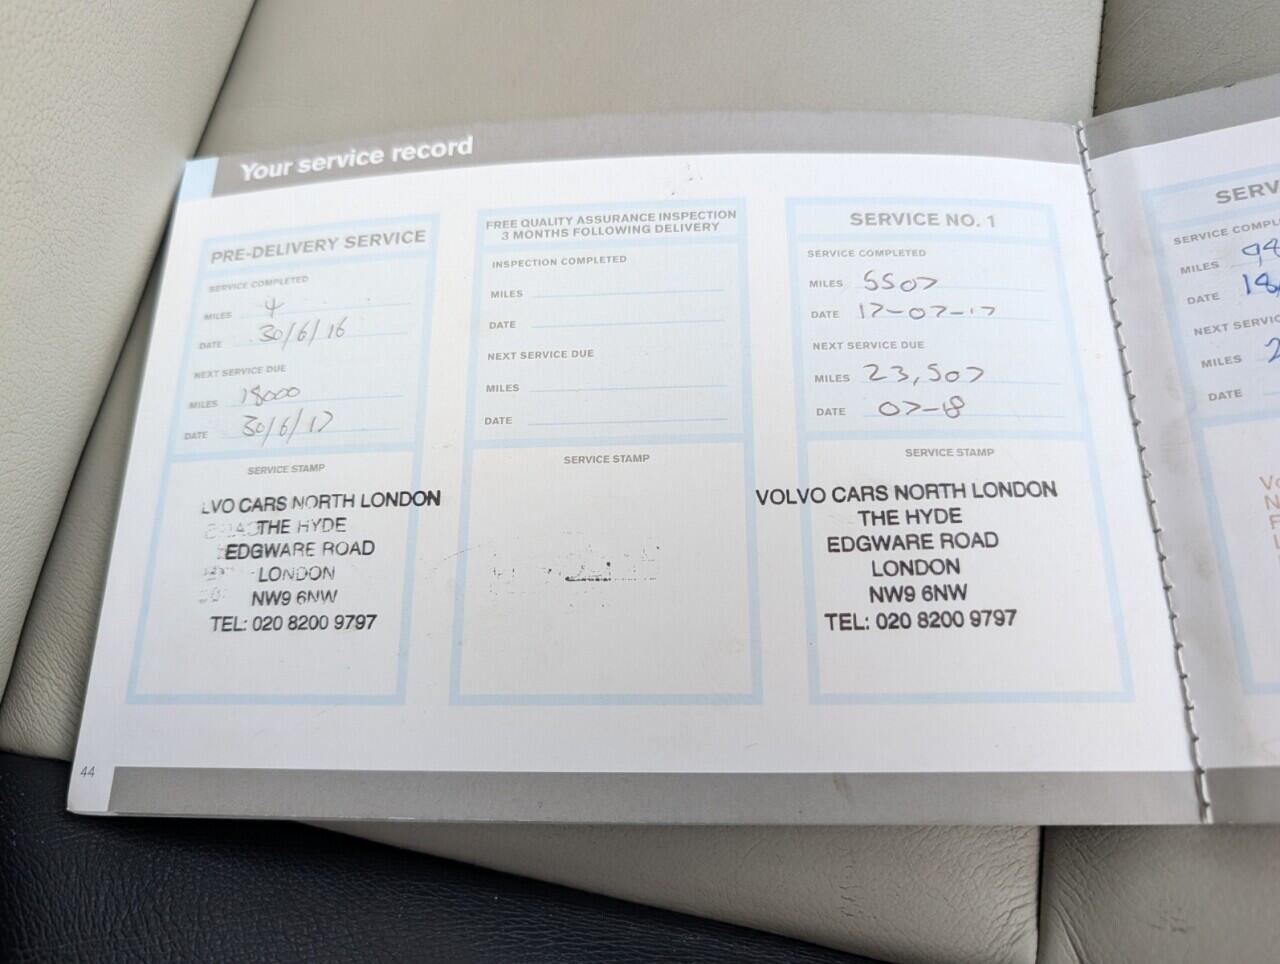 Your service record
PRE-DELIVERY SERVICE
SERVICE COMPLETED
MILES 4
DATE 30/6/16
NEXT SERVICE DUE
MILES 18000
DATE 30/6/17
SERVICE STAMP
LVO CARS NORTH LONDON
THE HYDE
EDGWARE ROAD
LONDON
NW9 6NW
TEL: 020 8200 9797
FREE QUALITY ASSURANCE INSPECTION
3 MONTHS FOLLOWING DELIVERY
INSPECTION COMPLETED
MILES
DATE
NEXT SERVICE DUE
MILES
DATE
SERVICE STAMP
SERVICE NO. 1
SERVICE COMPLETED
MILES 5507
DATE 17-07-17
NEXT SERVICE DUE
MILES 23,507
DATE 07-18
SERVICE STAMP
VOLVO CARS NORTH LONDON
THE HYDE
EDGWARE ROAD
LONDON
NW9 6NW
TEL: 020 8200 9797
44
SERV
SERVICE COMPL
MILES
DATE 18
NEXT SERVIC
MILES 2
DATE